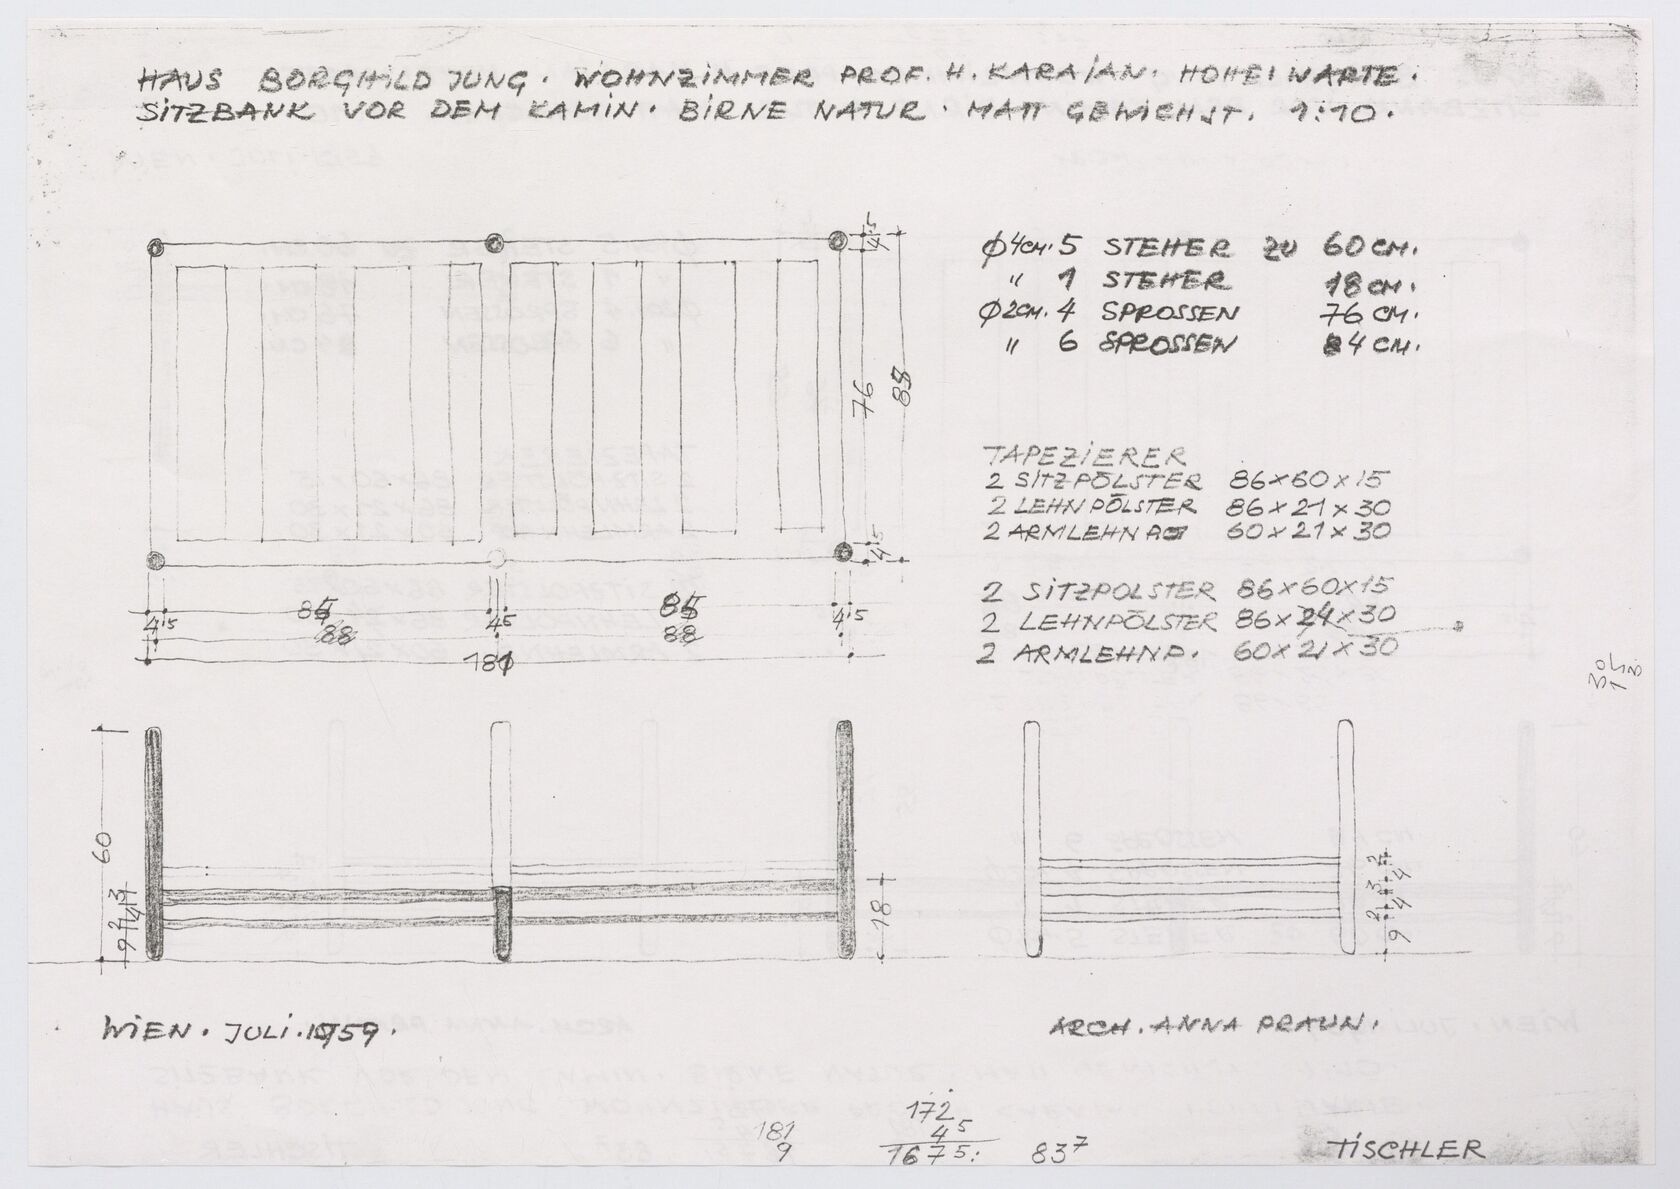 HAUS BORGHILD JUNG. WOHNZIMMER PROF. H. KARAJAN. HOHE WARTE.
SITZBANK VOR DEM KAMIN. BIRNE NATUR. MATT GEWICHST. 1:10.
⌀4CM. 5 STEHER ZU 60CM.
" 1 STEHER 18CM.
⌀2CM. 4 SPROSSEN 76 CM.
" 6 SPROSSEN 84 CM.
4,5
76
4,5
TAPEZIERER
2 SITZPÖLSTER 86×60×15
2 LEHNPÖLSTER 86×21×30
2 ARMLEHN 60×21×30
2 SITZPOLSTER 86×60×15
2 LEHNPÖLSTER 86×24×30
2 ARMLEHNP. 60×21×30
4,5 4 5 4,5
88 88
60
3
4
2
9
18
2
4
3
4
2
9
WIEN. JULI. 1959.
ARCH. ANNA PRAUN.
172
4 5
167 5:
181
9
83 7
TISCHLER